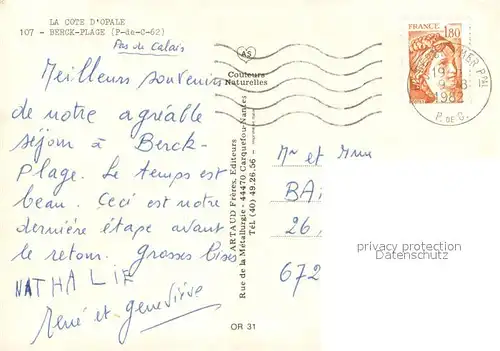 LA COTE D'OPALE
107 - BERCK-PLAGE (P-de-C-62)
Pas de Calais
Meilleurs souvenirs
de notre agréable
séjour à Berck-
Plage. Le temps est
beau. Ceci est notre
dernière étape avant
le retour. Grosses bises
NATHALIE
René et geneviève
AS
Couleurs
Naturelles
ARTAUD Frères, Editeurs
Rue de la Métallurgie - 44470 Carquefou-Nantes
Tél. (40) 49.26.56 -
OR 31
FRANCE
1,80
1982
P. DE C.
Mr et Mme
BAi
26,
672
privacy protection
AnsichtskartenHandel.com